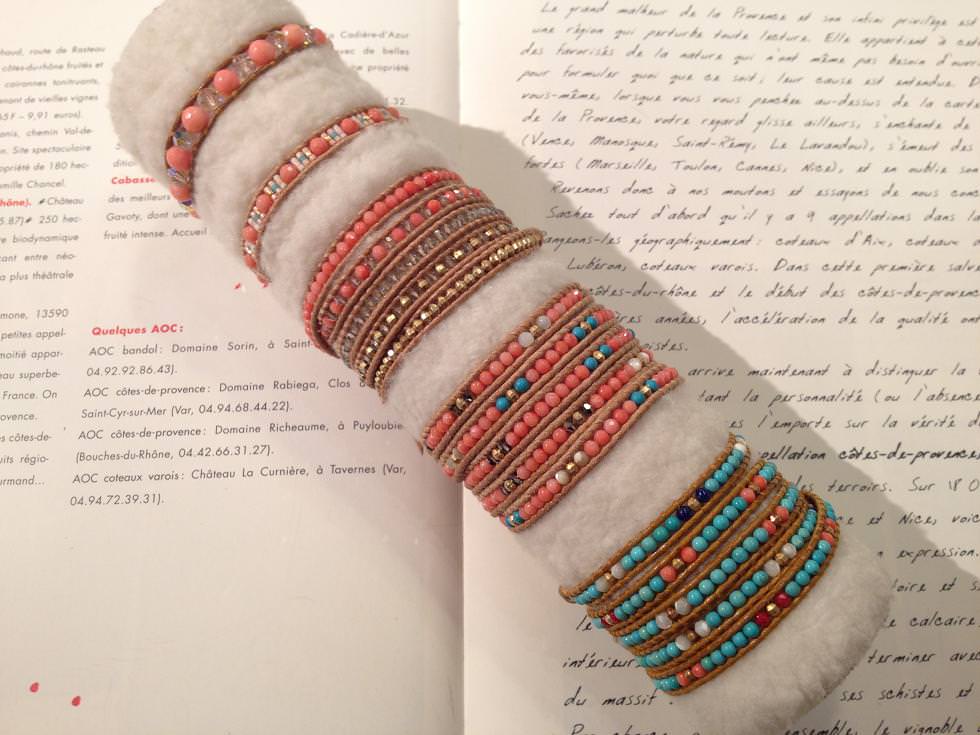 haud, route de Rasteau
côtes-du-rhône fruités et
cairannes tonitruants,
nant de vieilles vignes
65 F – 9,91 euros).
anis, chemin Val-de-
n. Site spectaculaire
opriété de 180 hec-
amille Chancel.
hône). # Château
5.87)# 250 hec-
re biodynamique
cant entre néo-
a plus théâtrale
mone, 13590
petites appel-
moitié appar-
eau superbe-
France. On
ovence.
s côtes-de-
uits régio-
urmand...
a Cadière-d'Azur
avec de belles
e propriété
32.
ditio
Cabasse
des meilleurs
Gavoty, dont une
fruité intense. Accueil
Quelques AOC :
AOC bandol : Domaine Sorin, à Saint-
04.92.92.86.43).
AOC côtes-de-provence : Domaine Rabiega, Clos
Saint-Cyr-sur-Mer (Var, 04.94.68.44.22).
AOC côtes-de-provence : Domaine Richeaume, à Puyloubie
(Bouches-du-Rhône, 04.42.66.31.27).
AOC coteaux varois : Château La Curnière, à Tavernes (Var,
04.94.72.39.31).
Le grand malheur de la Provence et son infini privilège est
une région qui perturbe toute lecture. Elle appartient à cet
des favorisés de la nature qui n'ont même pas besoin d'ouvri
pour formuler quoi que ce soit ; leur cause est entendue.
vous-même, lorsque vous vous penchez au-dessus de la carte
de la Provence, votre regard glisse ailleurs, s'enchante de
(Vence, Manosque, Saint-Rémy, Le Lavandou), s'émeut des
fortes (Marseille, Toulon, Cannes, Nice), et en oublie son
Revenons donc à nos moutons et essayons de nous conc
Sachez tout d'abord qu'il y a 9 appellations dans
angeons-les géographiquement : coteaux d'Aix, coteaux
Lubéron, coteaux varois. Dans cette première salve
côtes-du-rhône et le début des côtes-de-provenc
res années, l'accélération de la qualité ont
oistes.
arrive maintenant à distinguer la
tant la personnalité (ou l'absence
es l'emporte sur la vérité d
pellation côtes-de-provence
les terroirs. Sur 18 0
ce et Nice, voic
expression.
oire et
le
e calcaire,
intérieur,
terminer avec
du massif
ses schistes et
ensemble, le vignoble